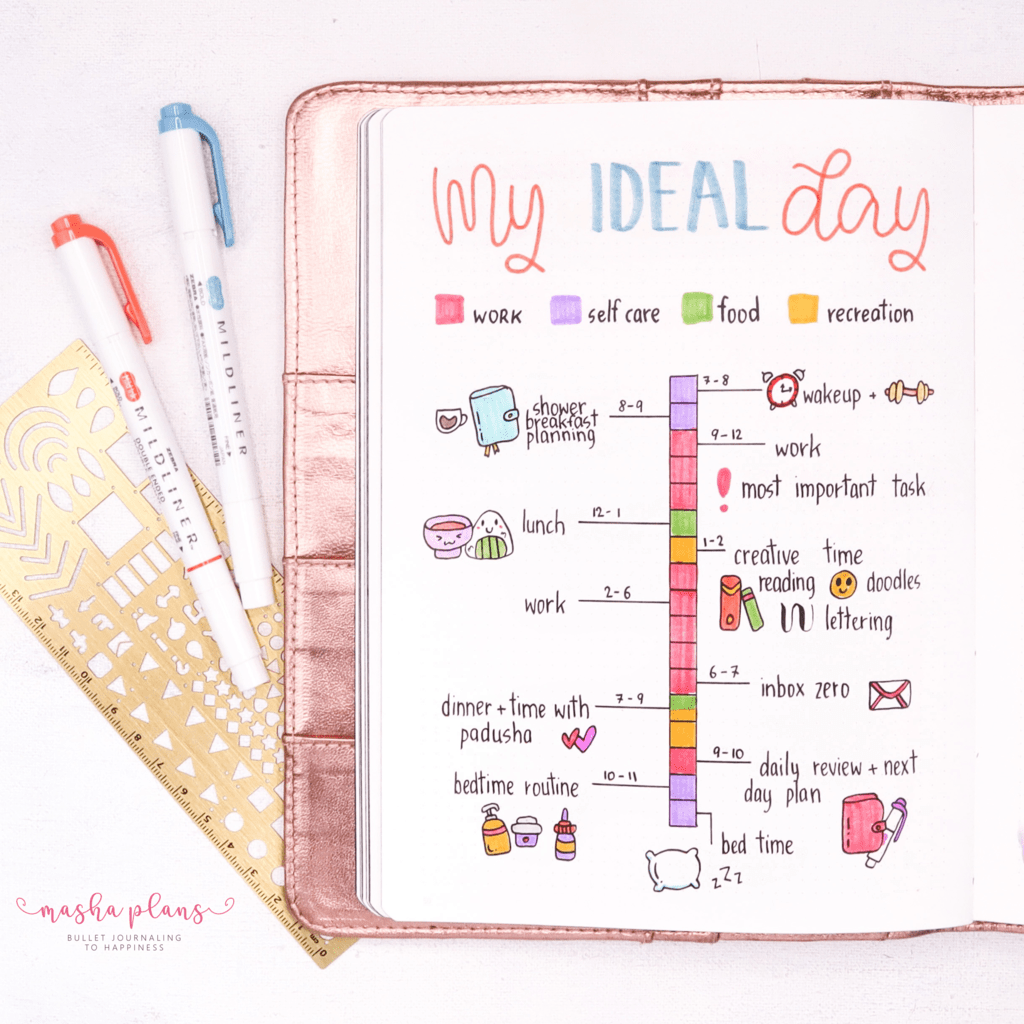 My IDEAL day
work self care food recreation
7-8 wakeup +
8-9 shower
breakfast
planning
9-12 work
! most important task
lunch 12-1
1-2 creative time
reading doodles
lettering
work 2-6
6-7 inbox zero
dinner + time with 7-9
padusha
9-10 daily review + next
day plan
bedtime routine 10-11
bed time
zZZ
MILDLINER
ZEBRA
MILDLINER
DOUBLE ENDED
ZEBRA
13
12
11
10
9
8
7
6
5
4
3
2
1
0
masha plans
BULLET JOURNALING
TO HAPPINESS